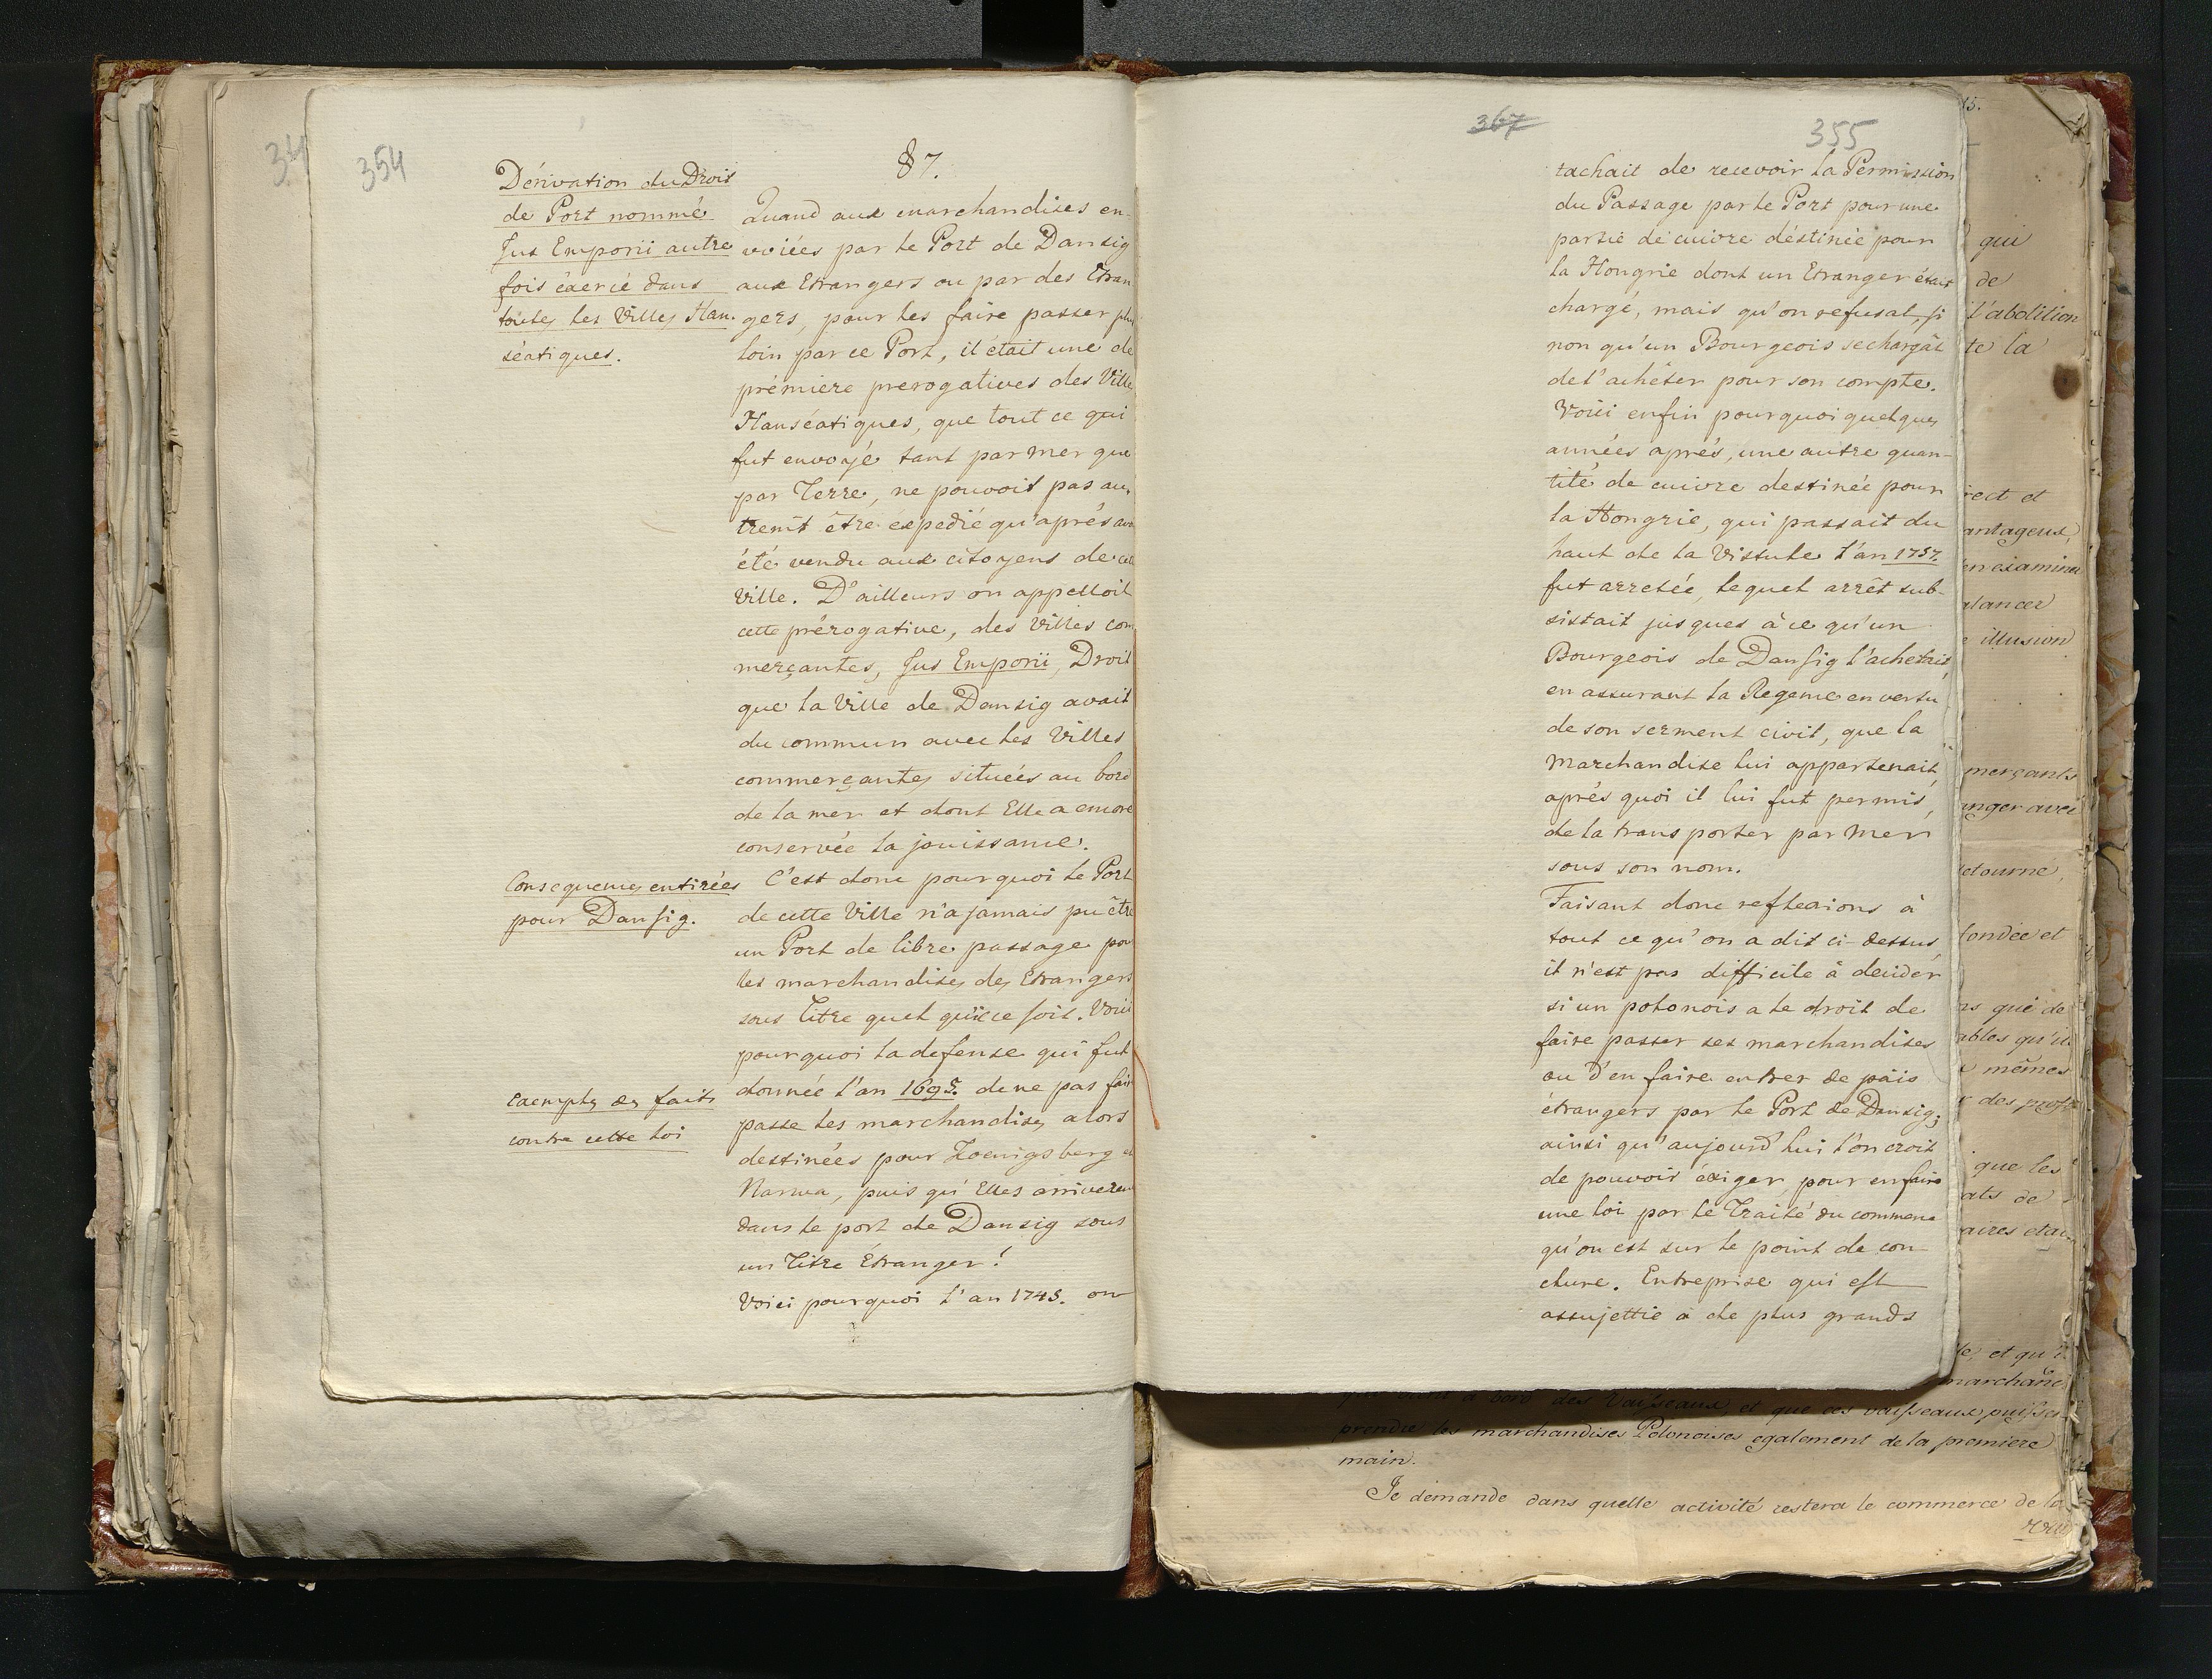 354
§7.
Dérivation du Droit
de Port nommé
Jus Emporii autre
fois éxercé dans
toutes les Villes Han-
séatiques.
Quand aux marchandises en-
voiées par le Port de Dansig
aux Etrangers ou par des Etran
gers, pour les faire passer plus
loin par ce Port, il était une de
prémiere prerogatives des Ville
Hanséatiques, que tout ce qui
fut envoyé tant par mer que
par Terre, ne pouvoit pas au-
tremt être éxpedié qu'aprés avo
été vendu aux citoyens de cet
Ville. D'ailleurs on appelloit
cette prérogative, des Villes com
merçantes, Jus Emporii, Droit
que la Ville de Dansig avait
du commun avec les Villes
commerçantes situeés au bord
de la mer et dont Elle a encore
conservée la jouissance.
Consequences entirées
pour Dansig.
C'est donc pourquoi le Port
de cette Ville n'a jamais pu être
un Port de libre passage pou
les marchandises des Etrangers
sous Titre quel qu'il ce soit. Voici
pourquoi la defense qui fut
Exemples des faits
contre cette loi
donnée l'an 1695. de ne pas fair
passe les marchandises alors
destinées pour Koenigsberg et
Narwa, puis qu'Elles arriveren
dans le port de Dansig sous
un Titre Étranger!
Voici pourquoi l'an 1745. on
367
355
tachait de recevoir la Permission
du Passage par le Port pour une
partie de cuivre déstinée pour
la Hongrie dont un Etranger était
chargé, mais qu'on refusat, si
non qu'un Bourgeois se chargât
de l'achéter pour son compte.
Voici enfin pourquoi quelques
années aprés, une autre quan-
tité de cuivre destinée pour
la Hongrie, qui passait du
haut de la Vistule l'an 1757.
fut arretée, lequel arrêt sub-
sistait jusques à ce qu'un
Bourgeois de Dansig l'achetait,
en assurant la Regence en vertu
de son serment civil, que la
Marchandise lui appartenait,
aprés quoi il lui fut permis,
de la transporter par Mer
sous son nom.
Faisant donc reflexions à
tout ce qu'on a dit ci-dessus,
il n'est pas difficile à decider
si un polonois a le droit de
faire passer ses marchandises
ou d'en faire entrer de païs
étrangers par le Port de Dansig;
ainsi qu'aujourd'hui l'on croit
de pouvoir éxiger pour en faire
une loi par le Traité du commerce
qu'on est sur le point de con-
clure. Entreprise qui est
assujettie à de plus grands
15.
qui
de
l'abolition
te la
rect et
antageux,
en examine
alancer
e illusion
merçants
anger avec
etourne,
fondée et
que de
ables qu'il
mêmes
des profi
que les
ats de
aires etai
et qu'i
marchand
des Vaisseaux, et que ces vaisseaux puisse
prendre les marchandises Polonoises egalement de la premiere
main.
Je demande dans quelle activité restera le commerce de la